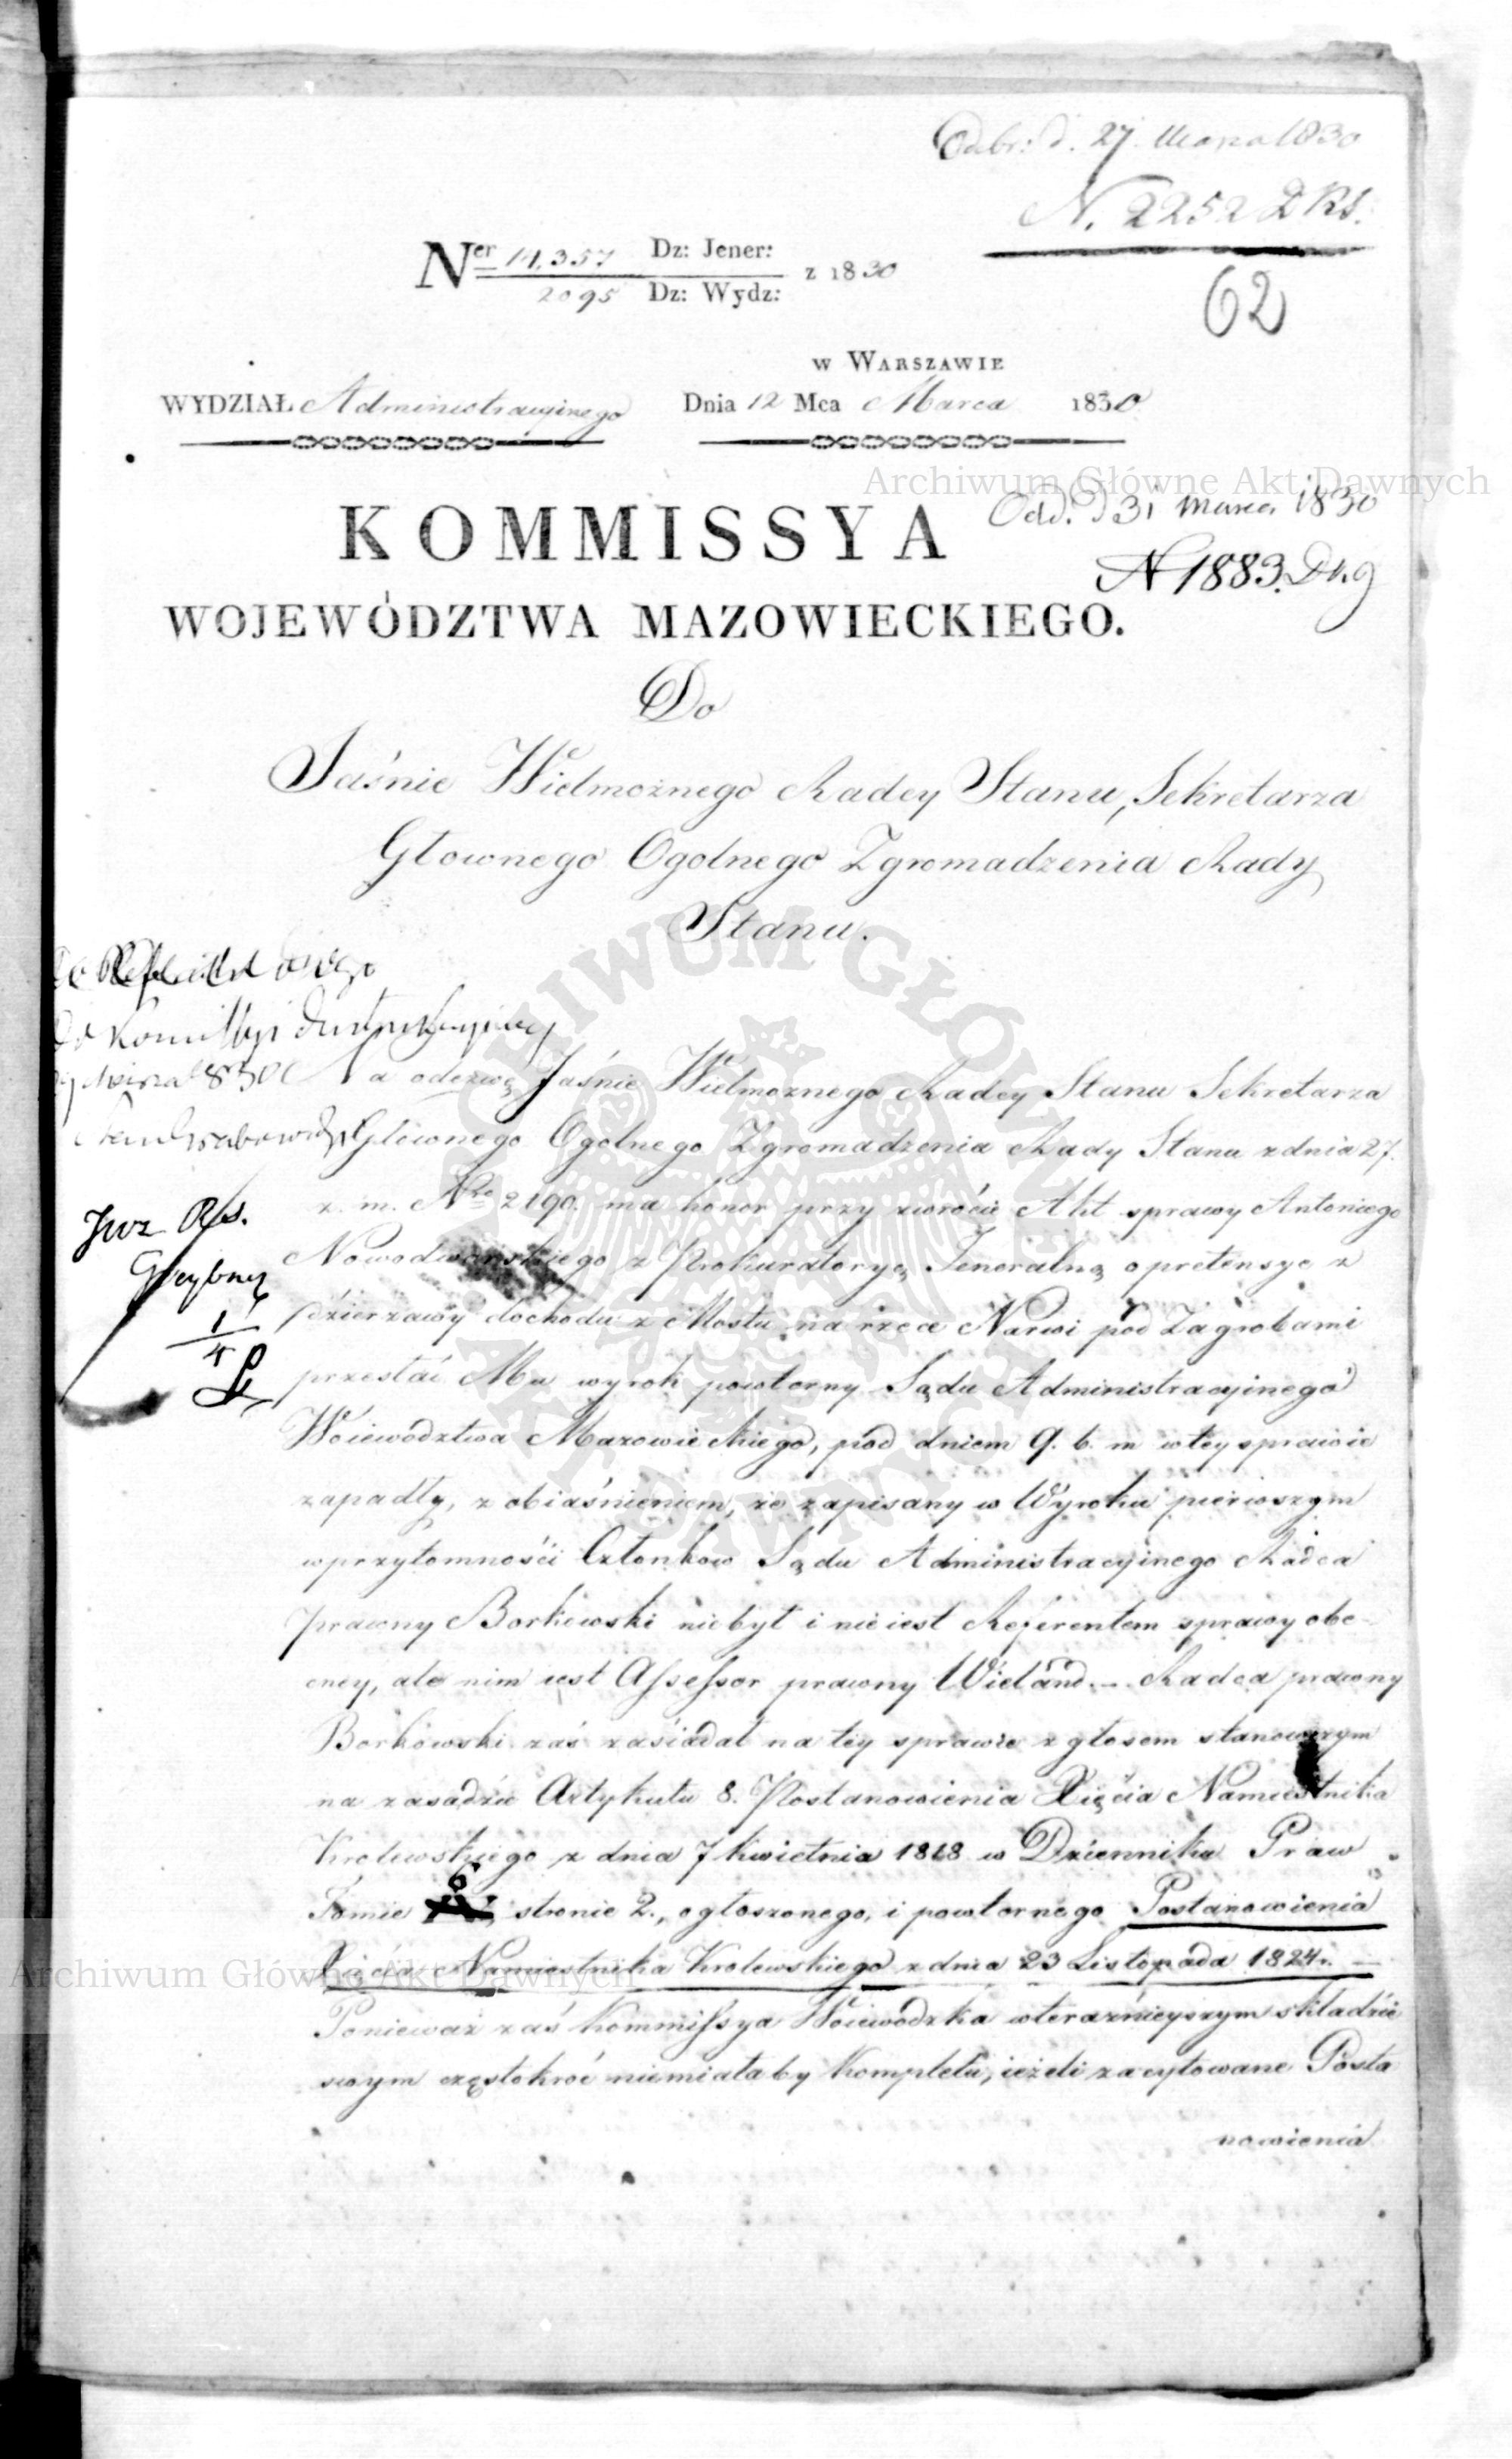 Odbr: d. 27. Marca 1830
N. 2252 D Rs.
62
Ner 14,357 Dz: Jener:
2095 Dz: Wydz: z 1830
w Warszawie
WYDZIAŁ Administracyinego Dnia 12 Mca Marca 1830
Archiwum Główne Akt Dawnych
Odd. D 31 Marca 1830
KOMMISSYA
N 1883.
WOJEWÓDZTWA MAZOWIECKIEGO.
Do
Jaśnie Wielmożnego Radcy Stanu, Sekretarza
Głownego Ogolnego Zgromadzenia Rady
Stanu.
Do
Do Kommissyi
Marca 1830
Na odezwę Jaśnie Wielmożnego Radcy Stanu Sekretarza
Głównego Ogolnego Zgromadzenia Rady Stanu z dnia 27.
z. m. Nro 2190. ma honor przy zwrócie Akt sprawy Antoniego
Nowodworskiego z Prokuratoryą Jeneralną o pretensye z
dzierzawy dochodu z Mostu na rzece Narwi pod Zagrobami
przesłać Mu wyrok powtorny Sądu Administracyinego
Woiewodztwa Mazowieckiego, pod dniem 9. b. m w tey sprawie
zapadły, z obiaśnieniem, że zapisany w Wyroku pierwszym
w przytomności Członkow Sądu Administracyinego Radca
prawny Borkowski nie był i nie iest Referentem sprawy obe-
cney, ale nim iest Assessor prawny Wieland. – Radca prawny
Borkowski zaś zasiadał na tey sprawie z głosem stanowczym
na zasadzie Artykułu 8. Postanowienia Xięcia Namiestnika
Krolewskiego z dnia 7 kwietnia 1818 w Dzienniku Praw
Tomie 6 stronie 2., ogłoszonego, i powtornego Postanowienia
Xięcia Namiestnika Krolewskiego z dnia 23 Listopada 1824 r. –
Ponieważ zaś Kommissya Woiewodzka w terażnieyszym składzie
swym częstokroć niemiałaby Kompletu, ieżeli zacytowane Posta
nowienia
Archiwum Główne Akt Dawnych
ARCHIWUM GŁÓWNE AKT DAWNYCH